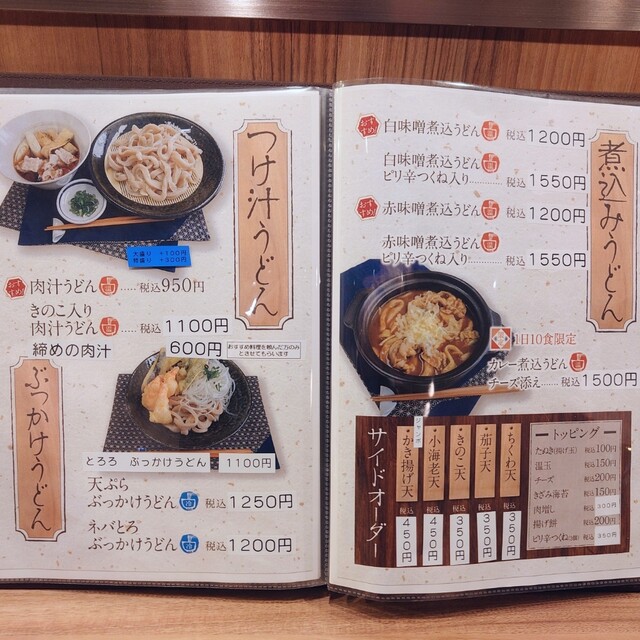 つけ汁うどん
大盛り +100円
特盛り +300円
おすすめ!
肉汁うどん ..... 税込 950円
きのこ入り
肉汁うどん ... 税込 1100円
締めの肉汁 600円
おすすめ料理を頼んだ方のみ
とさせてもらいます
ぶっかけうどん
とろろ ぶっかけうどん 1100円
天ぷら
ぶっかけうどん 税込 1250円
ネバとろ
ぶっかけうどん 税込 1200円
煮込みうどん
おすすめ!
白味噌煮込うどん 税込 1200円
白味噌煮込うどん
ピリ辛つくね入り ......... 税込 1550円
おすすめ!
赤味噌煮込うどん 税込 1200円
赤味噌煮込うどん
ピリ辛つくね入り ......... 税込 1550円
1日10食限定
カレー煮込うどん
チーズ添え ..... 税込 1500円
サイドオーダー
ジャンボ
かき揚げ天 税込 450円
小海老天 税込 450円
きのこ天 税込 350円
茄子天 税込 350円
ちくわ天 税込 350円
トッピング
たぬき(揚げ玉) 税込 100円
温玉 税込 150円
チーズ 税込 200円
きざみ海苔 税込 150円
肉増し 税込 300円
揚げ餅 税込 200円
ピリ辛つくね 税込 350円